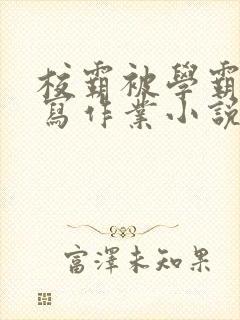 校霸被學霸
寫作業小說
富澤未知果